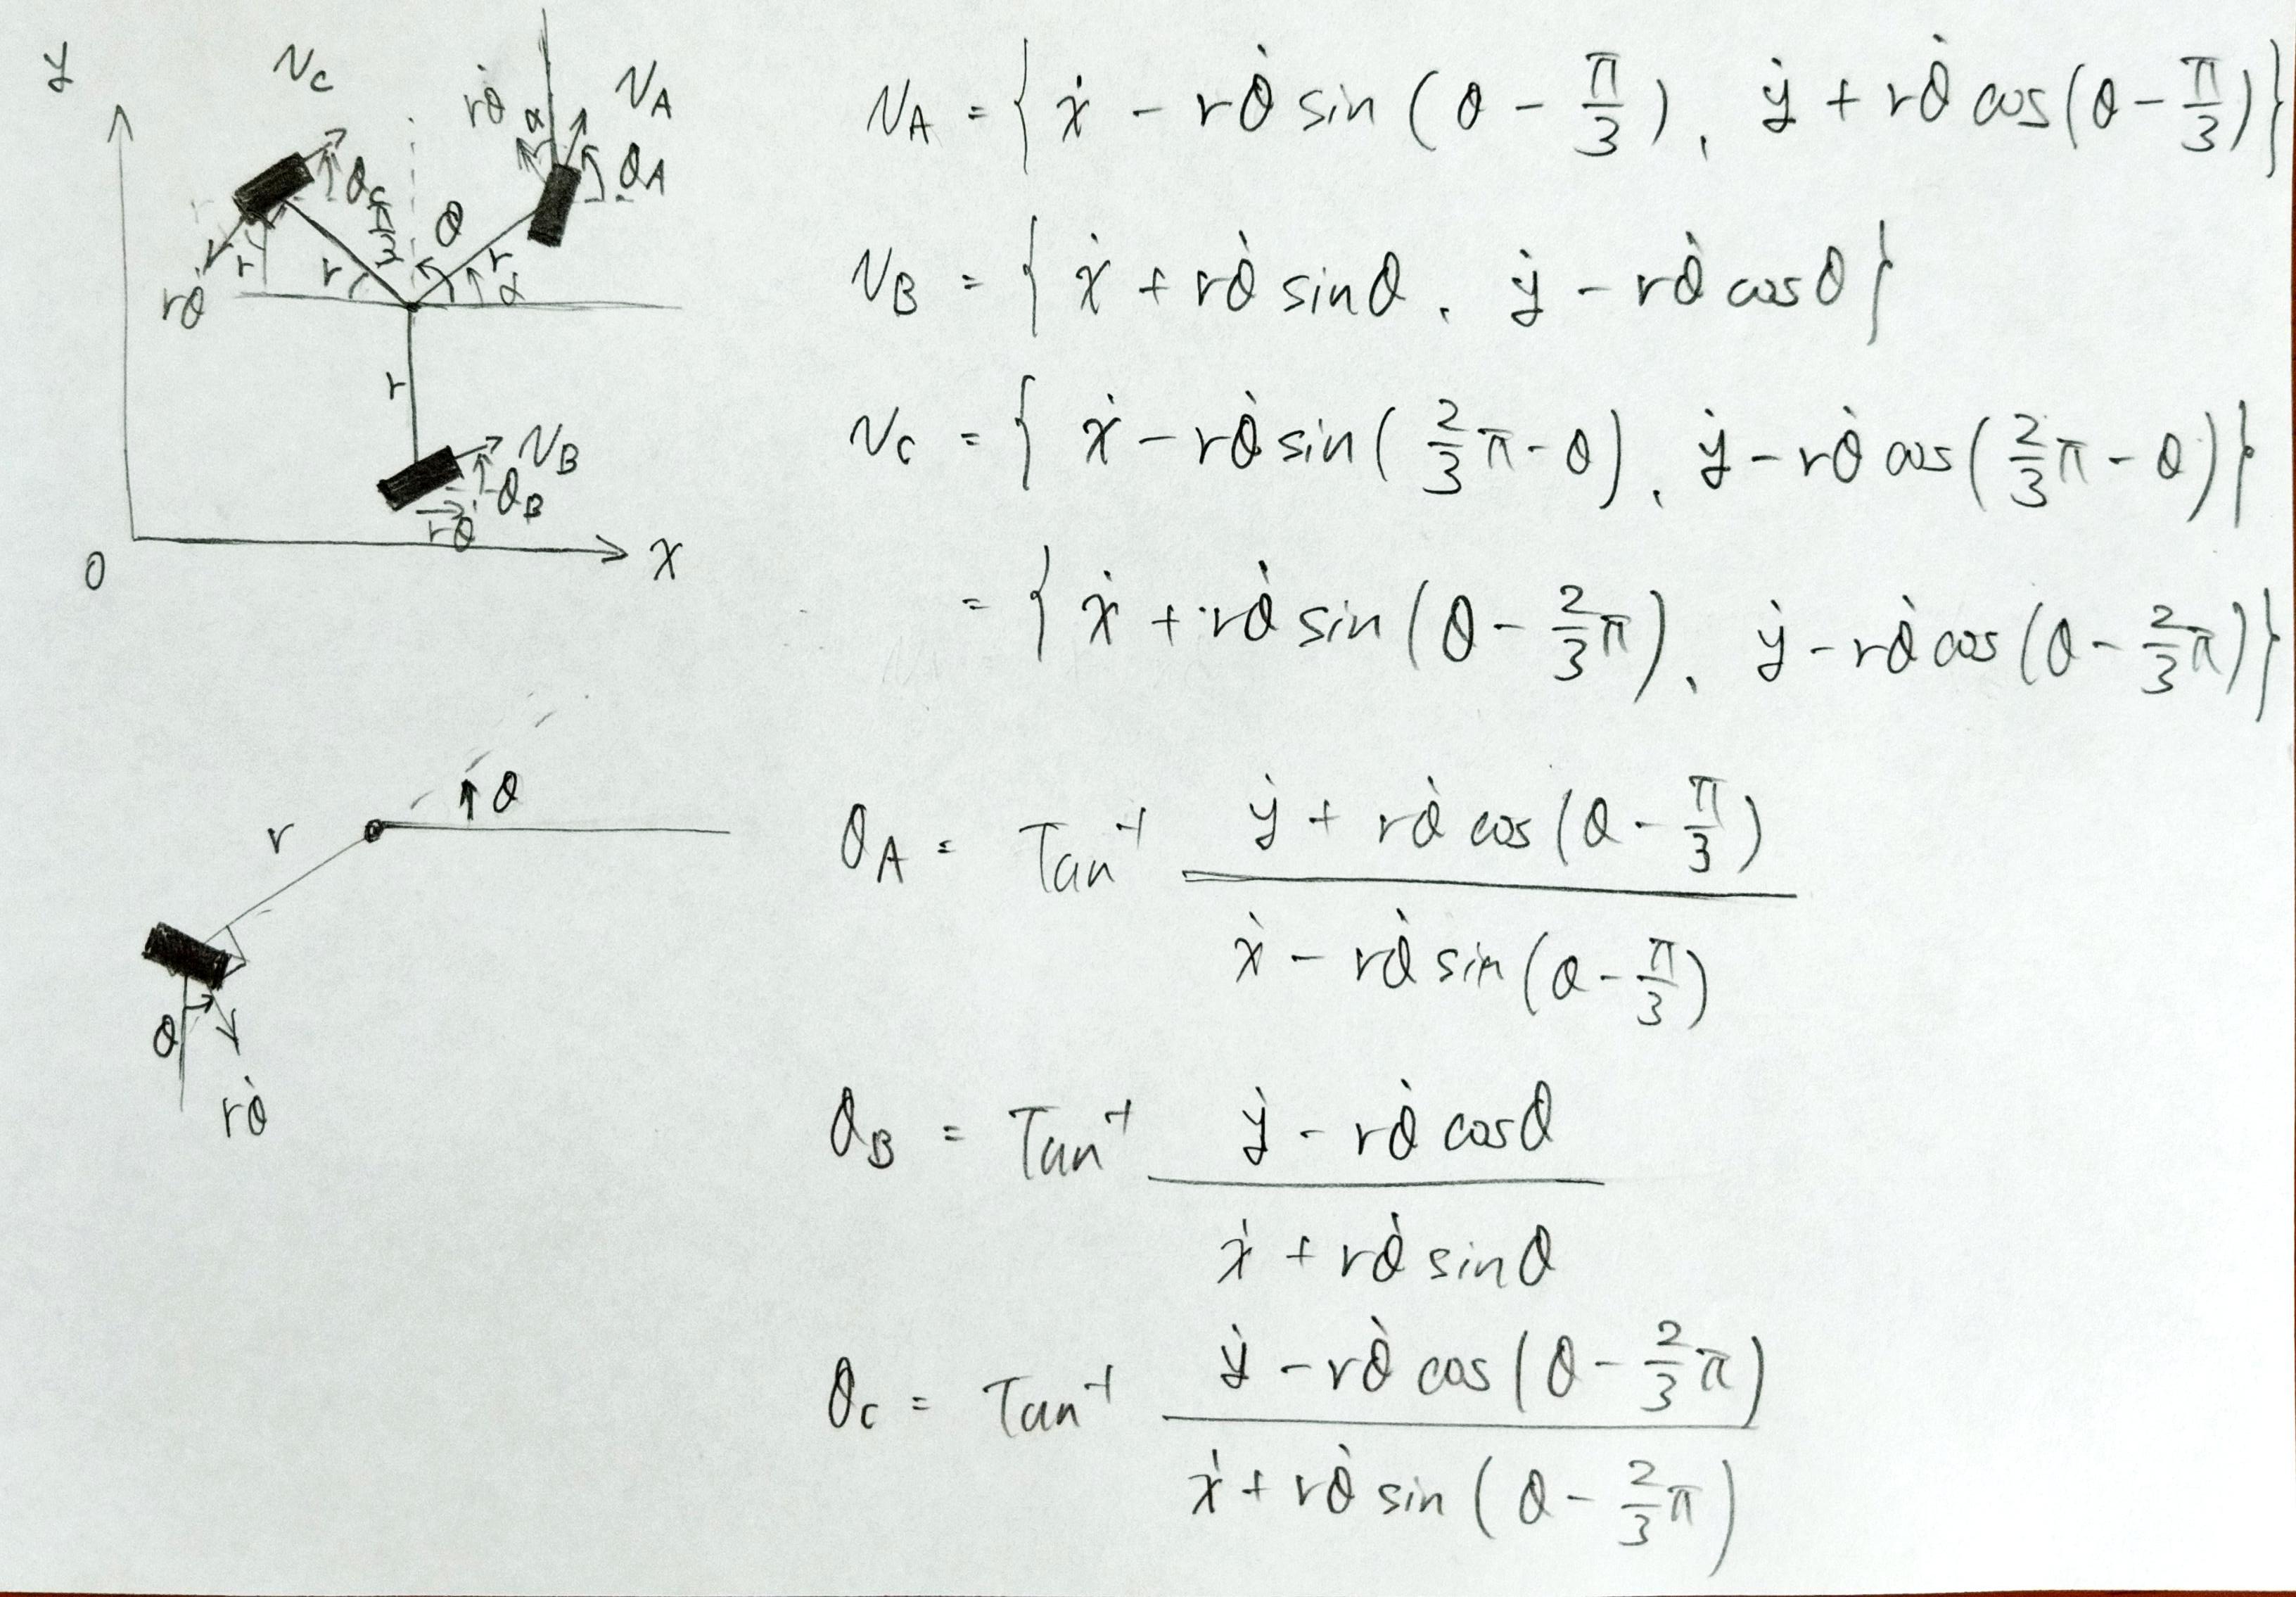 y
v_C
rθ̇
α
v_A
θ_A
θ_C
π/3
θ
r
r
α
r
rθ̇
r
v_B
θ_B
rθ̇
0
x
v_A = { ẋ - rθ̇ sin (θ - π/3), ẏ + rθ̇ cos(θ - π/3)}
v_B = { ẋ + rθ̇ sinθ, ẏ - rθ̇ cosθ}
v_C = { ẋ - rθ̇ sin( 2/3 π - θ), ẏ - rθ̇ cos( 2/3 π - θ)}
= { ẋ + rθ̇ sin(θ - 2/3 π), ẏ - rθ̇ cos(θ - 2/3 π)}
r
θ
θ
rθ̇
θ_A = Tan⁻¹ (ẏ + rθ̇ cos(θ - π/3)) / (ẋ - rθ̇ sin(θ - π/3))
θ_B = Tan⁻¹ (ẏ - rθ̇ cosθ) / (ẋ + rθ̇ sinθ)
θ_C = Tan⁻¹ (ẏ - rθ̇ cos(θ - 2/3 π)) / (ẋ + rθ̇ sin(θ - 2/3 π))